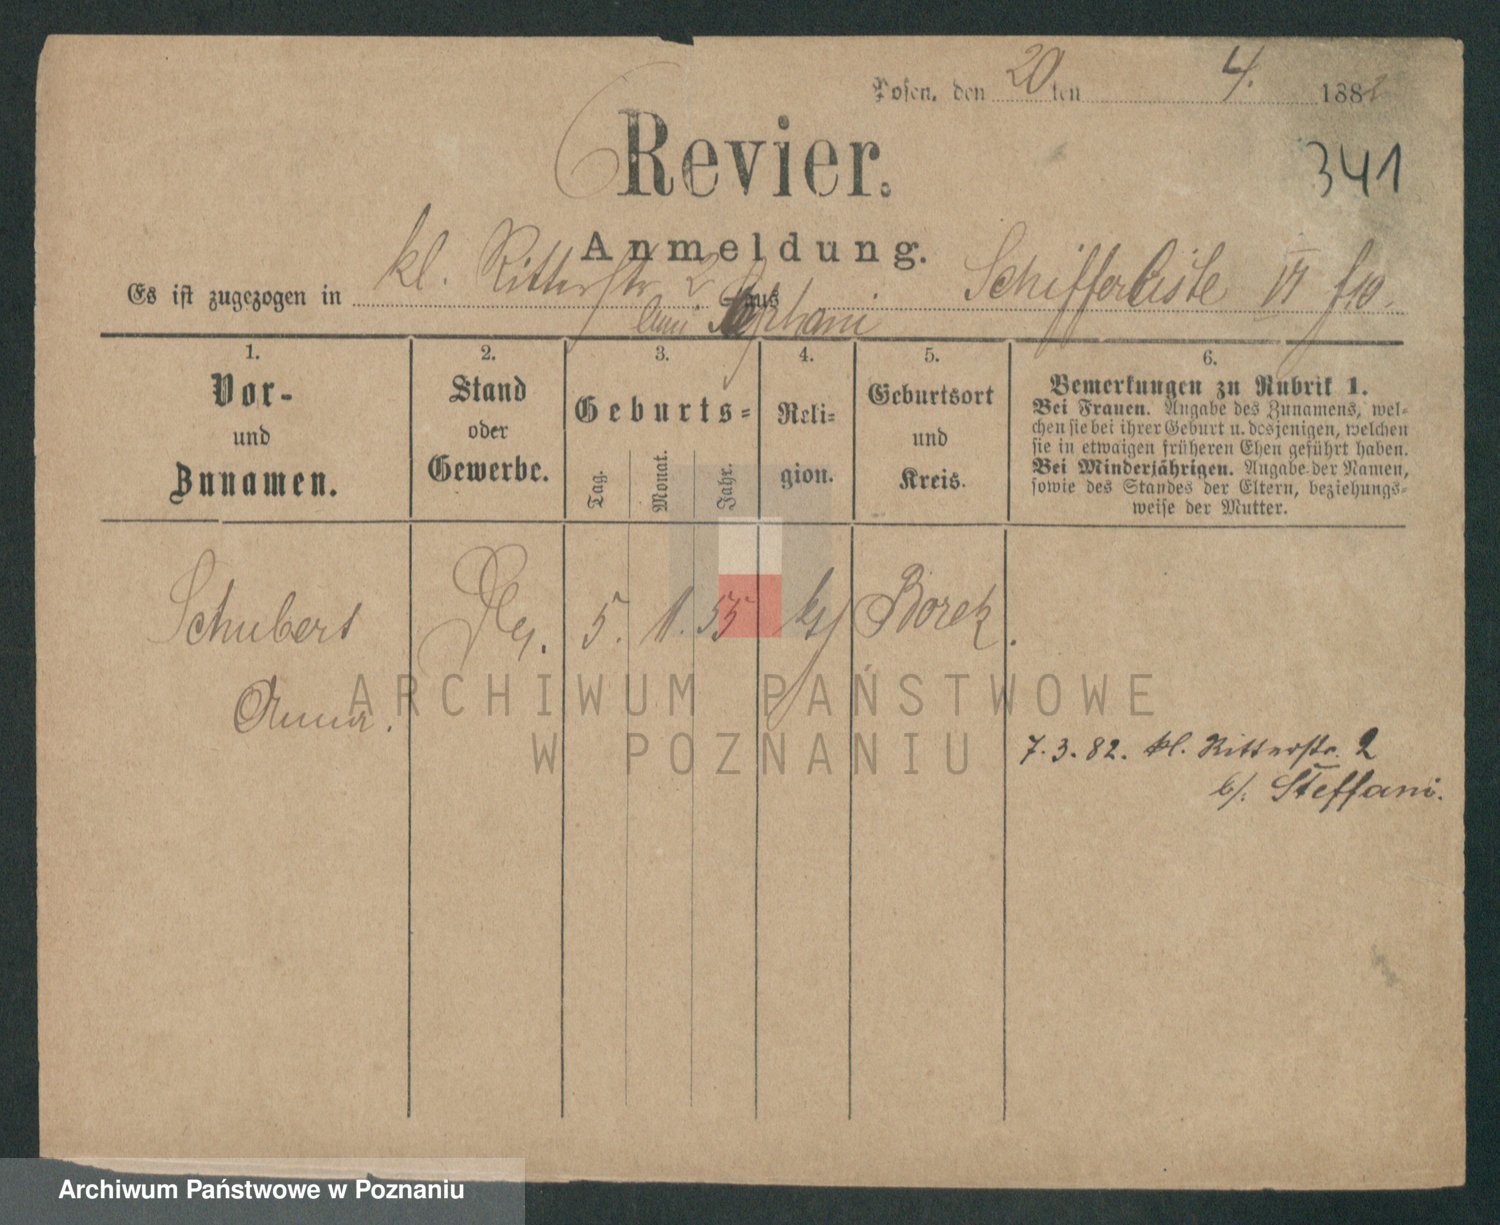 Posen, den 20ten 4. 1882
341
Revier.
Anmeldung.
Es ist zugezogen in kl. Ritterstr. 2 aus Schifferliste VI f 10.
1.
Vor-
und
Zunamen.
2.
Stand
oder
Gewerbe.
3.
Geburts-
Tag.
Monat.
Jahr.
4.
Reli-
gion.
5.
Geburtsort
und
Kreis.
6.
Bemerkungen zu Rubrik 1.
Bei Frauen. Angabe des Zunamens, wel-
chen sie bei ihrer Geburt u. desjenigen, welchen
sie in etwaigen früheren Ehen geführt haben.
Bei Minderjährigen. Angabe der Namen,
sowie des Standes der Eltern, beziehungs-
weise der Mutter.
Schubert 5. 1. 55 Borek.
Anna.
7.3.82. kl. Ritterstr. 2
b/: Steffani.
ARCHIWUM PAŃSTWOWE
W POZNANIU
Archiwum Państwowe w Poznaniu